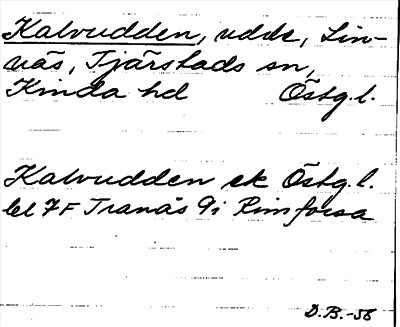 Kalvudden, udde, Lin-
näs, Tjärstads sn,
Kinda hd Östg.l.
Kalvudden ek Östg.l.
bl 7F Tranås 9i Rimforsa
D.B.-58